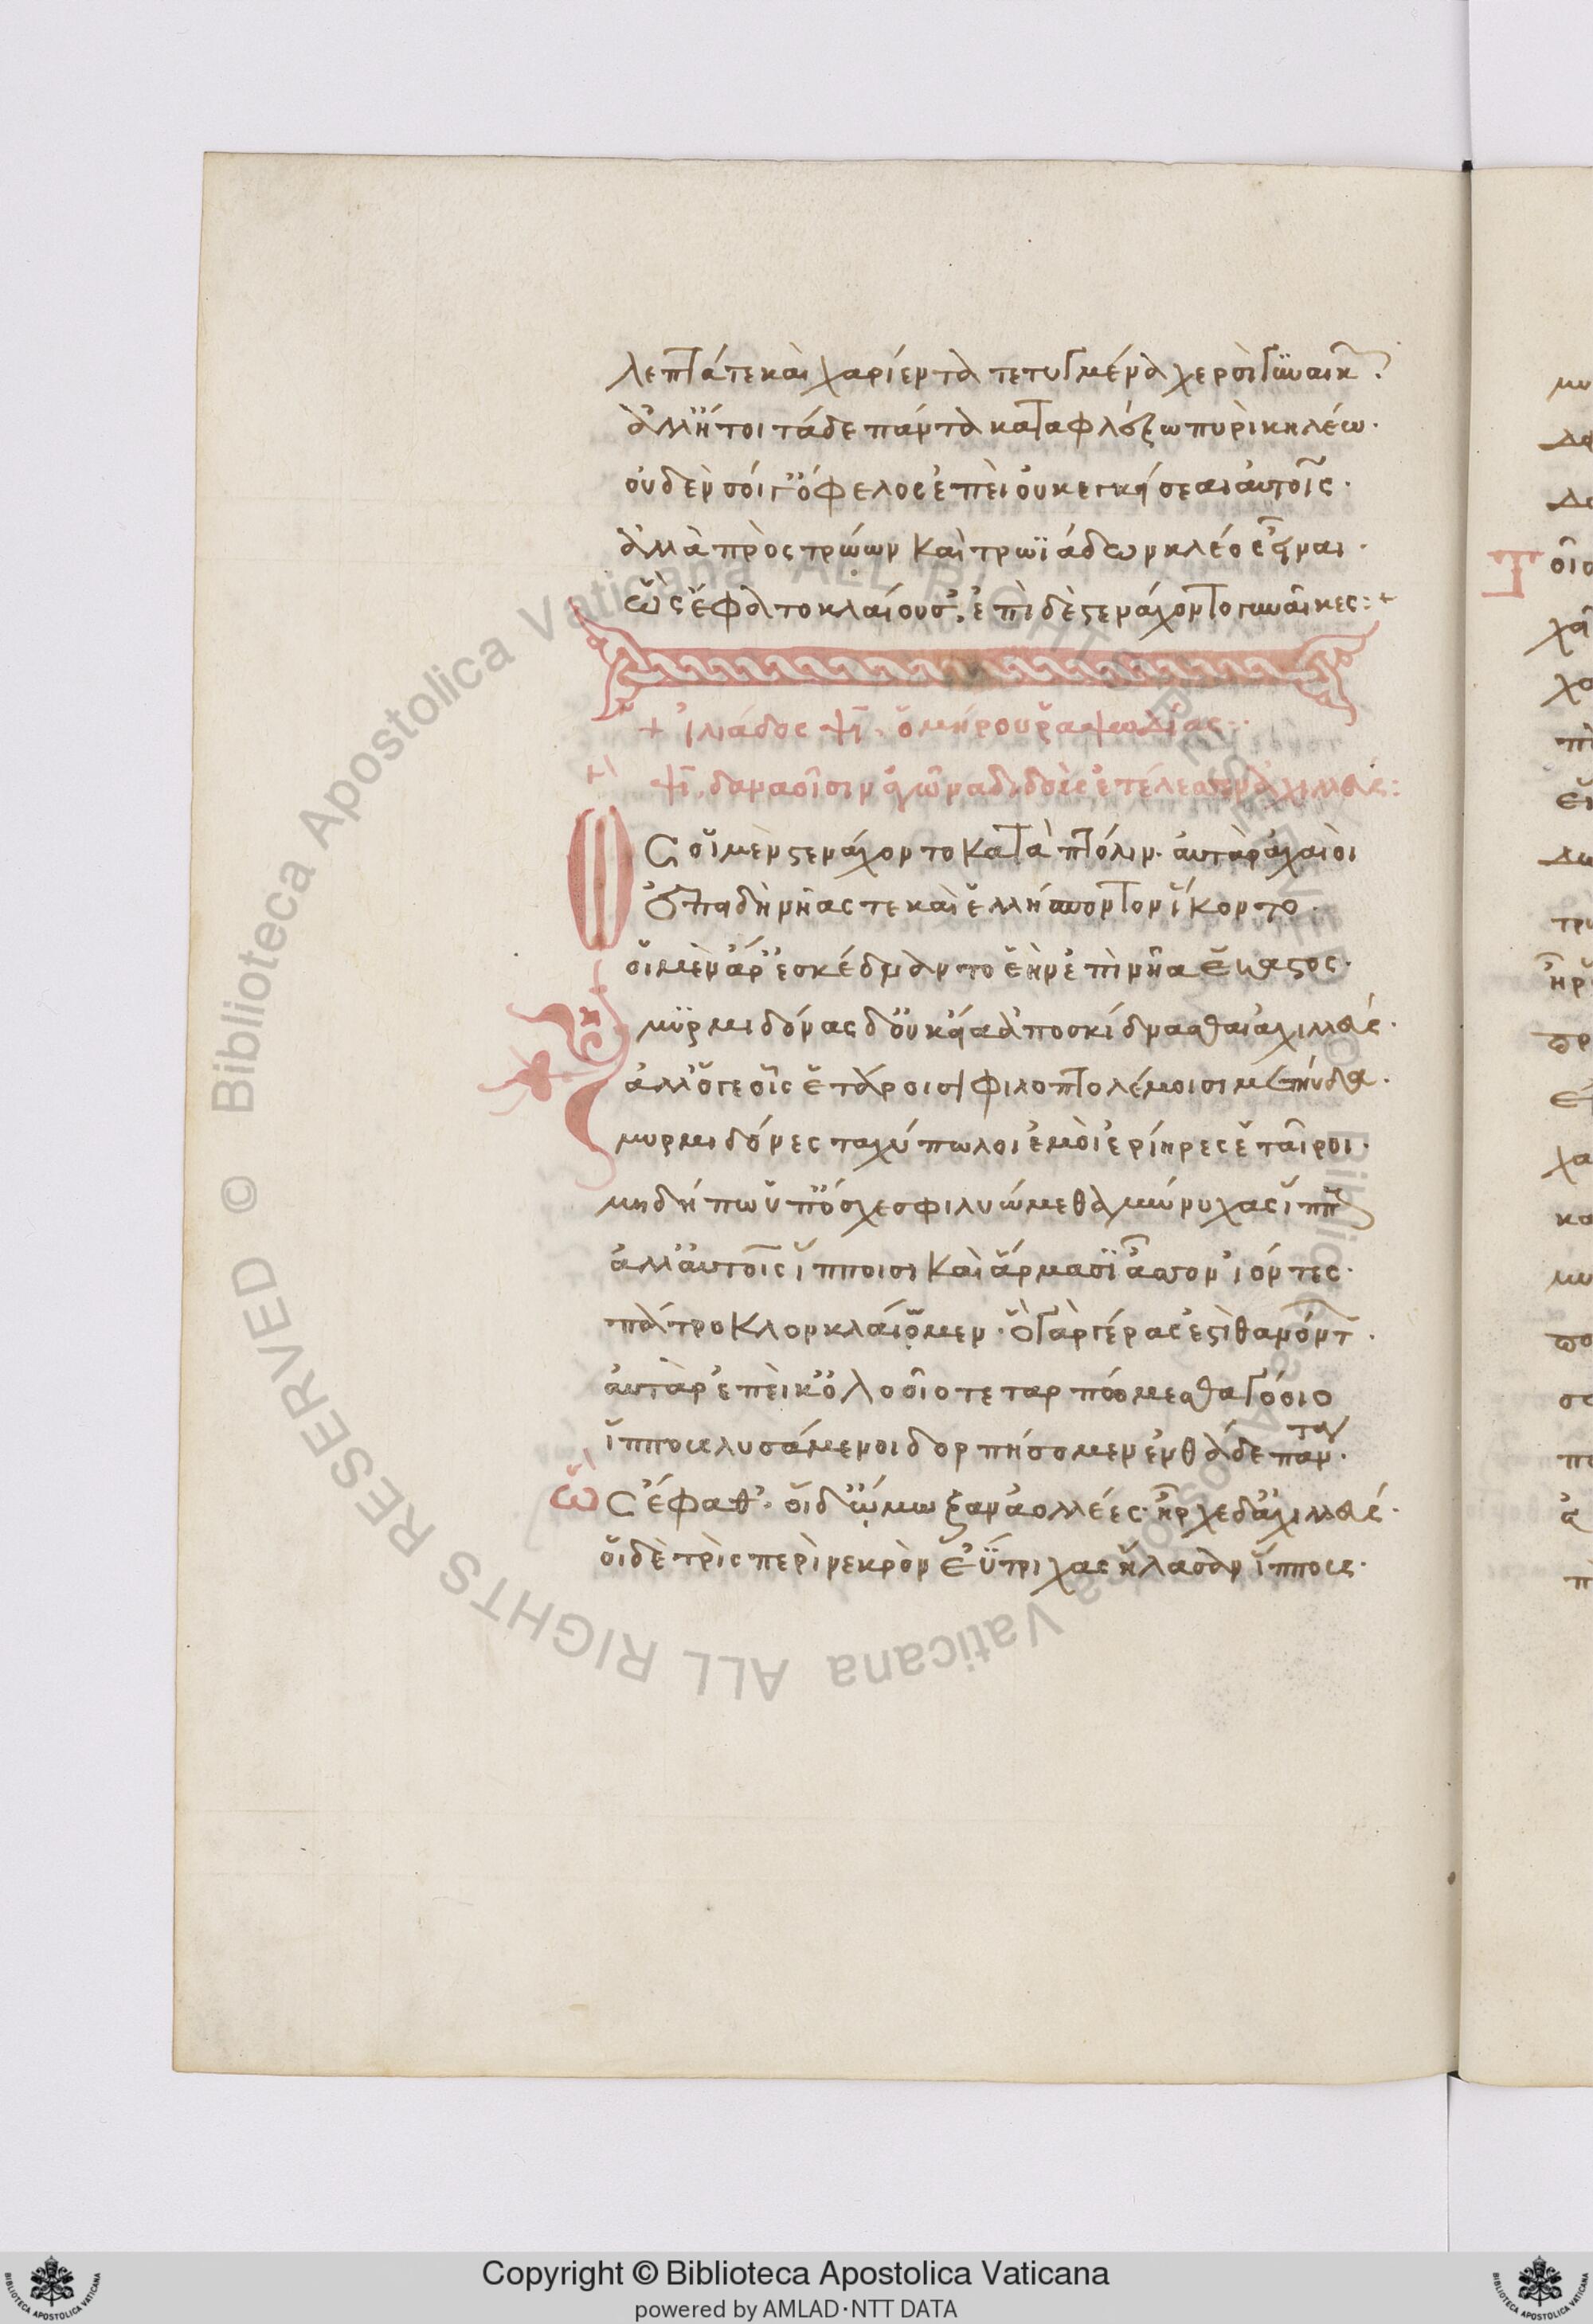 λεπτά τε καὶ χαρίεντα τετυγμένα χερσὶ γυναικ
ἀλλ' ἤτοι τάδε πάντα καταφλέξω πυρὶ κηλέω·
οὐδὲν σοί γ' ὄφελος ἐπεὶ οὐκ ἐγκείσεαι αὐτοῖς·
ἀλλὰ πρὸς τρώων καὶ τρωϊάδων κλέος εἶναι·
ὣς ἔφατο κλαίουσ'. ἐπὶ δὲ στενάχοντο γυναῖκες:+
+ ἰλιάδος ψῖ. ὁμήρου ῥαψωδίας:·
ψῖ. δαναοῖσιν ἀγῶνα διδοὺς ἐτέλεσσεν ἀχιλλεύς:
Ὣς οἱ μὲν στενάχοντο κατὰ πτόλιν· αὐτὰρ ἀχαιοὶ
ἐπειδὴ νῆάς τε καὶ ἑλλήσποντον ἵκοντο·
οἱ μὲν ἄρ' ἐσκέδναντο ἑὴν ἐπὶ νῆα ἕκαστος·
μυρμιδόνας δ' οὐκ εἴα ἀποσκίδνασθαι ἀχιλλεύς·
ἀλλ' ὅγε οἷς ἑτάροισι φιλοπτολέμοισι μετηύδα·
μυρμιδόνες ταχύπωλοι ἐμοὶ ἐρίηρες ἑταῖροι·
μὴ δήπω ὑπ' ὄχεσφι λυώμεθα μώνυχας ἵππ
ἀλλ' αὐτοῖς ἵπποισι καὶ ἅρμασιν ἆσσον ἰόντες·
πάτροκλον κλαίωμεν· ὃ γὰρ γέρας ἐστὶ θανόντ·
αὐτὰρ ἐπεί κ' ὀλοοῖο τεταρπόμεσθα γόοιο
ἵππους λυσάμενοι δορπήσομεν ἐνθάδε πάντ·
ὣς ἔφαθ'· οἱ δ' ᾤμωξαν ἀολλέες· ἦρχε δ' ἀχιλλεύς·
οἱ δὲ τρὶς περὶ νεκρὸν ἐύτριχας ἤλασαν ἵππους·
Copyright © Biblioteca Apostolica Vaticana
powered by AMLAD·NTT DATA